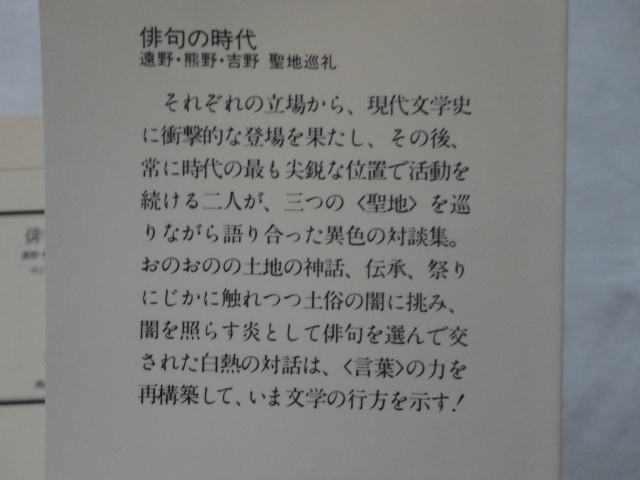 俳句の時代
遠野・熊野・吉野 聖地巡礼
それぞれの立場から、現代文学史
に衝撃的な登場を果たし、その後、
常に時代の最も尖鋭な位置で活動を
続ける二人が、三つの〈聖地〉を巡
りながら語り合った異色の対談集。
おのおのの土地の神話、伝承、祭り
にじかに触れつつ土俗の闇に挑み、
闇を照らす炎として俳句を選んで交
された白熱の対話は、〈言葉〉の力を
再構築して、いま文学の行方を示す!